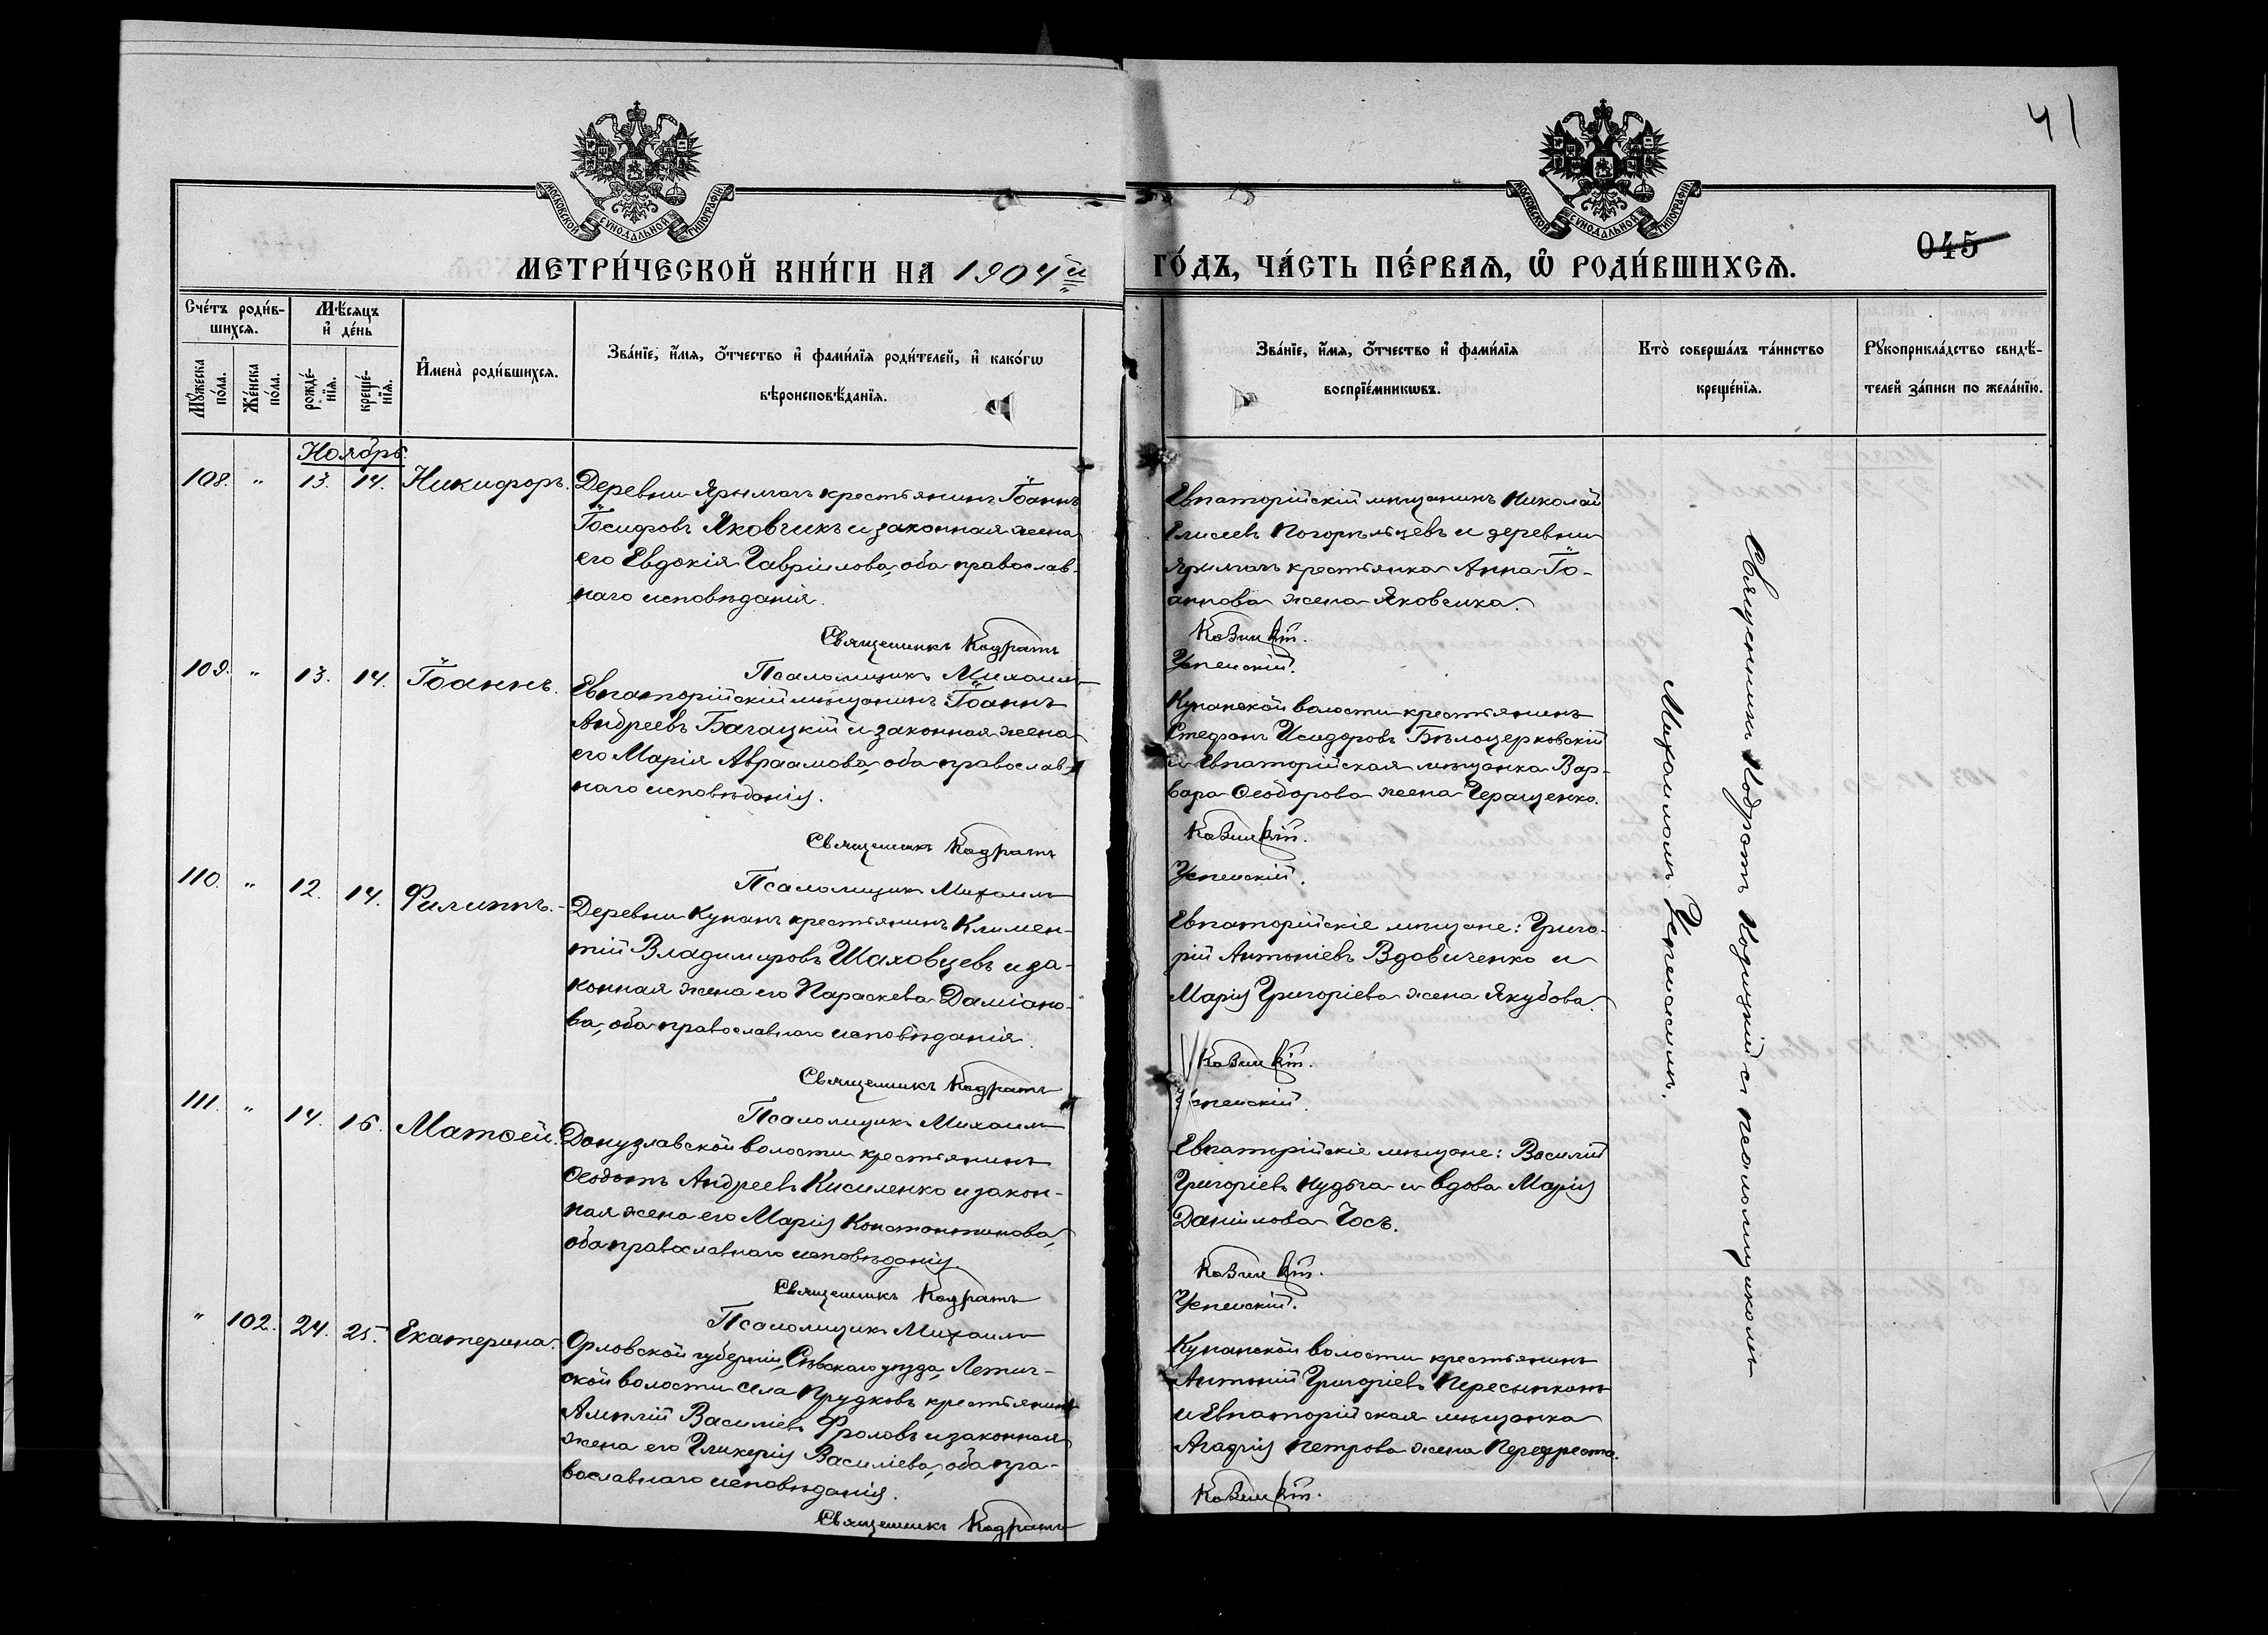 41
045
МОСКОВСКОЙ СѴНОДАЛЬНОЙ ТИПОГРАФІИ
МОСКОВСКОЙ СѴНОДАЛЬНОЙ ТИПОГРАФІИ
МЕТРИ́ЧЕСКОЙ КНИ́ГИ НА 1904й
ГО́ДЪ, ЧА́СТЬ ПЕ́РВАѦ, Ѡ РОДИ́ВШИХСѦ.
Сче́тъ роди́в-
шихсѧ.
Мꙋ́жеска по́ла.
Же́нска по́ла.
Мѣ́сѧцъ
и҆ де́нь
рожде́-
нїѧ.
креще́-
нїѧ.
И҆мена̀ роди́вшихсѧ.
Зва́нїе, и҆́мѧ, о҆́тчество и҆ фами́лїѧ роди́телей, и҆ како́гѡ
вѣроисповѣ́данїѧ.
Зва́нїе, и҆́мѧ, о҆́тчество и҆ фами́лїѧ
воспрїе́мникѡвъ.
Кто̀ соверша́лъ та́инство
креще́нїѧ.
Рꙋкоприкла́дство свидѣ́-
телей за́писи по жела́нїю.
Ноябрь.
108. " 13. 14. Никифоръ.
Деревни Ярылгачъ крестьянинъ Іоаннъ
Іосифовъ Яковчикъ и законная жена
его Евдокія Гавріилова, оба православ-
наго исповѣданія.
Священникъ Кодратъ
Псаломщикъ Михаилъ
Евпаторійскій мѣщанинъ Николай
Елисеевъ Погорѣльцевъ и деревни
Ярылгачъ крестьянка Анна Іо-
аннова жена Яковчика.
Успенскій.
109. " 13. 14. Іоаннъ.
Евпаторійскій мѣщанинъ Іоаннъ
Андреевъ Багацкій и законная жена
его Марія Авраамова, оба православ-
наго исповѣданія.
Священникъ Кодратъ
Псаломщикъ Михаилъ
Кунанской волости крестьянинъ
Стефанъ Исидоровъ Бѣлоцерковскій
и Евпаторійская мѣщанка Вар-
вара Ѳеодорова жена Геращенко.
Успенскій.
110. " 12. 14. Филиппъ.
Деревни Кунанъ крестьянинъ Климен-
тій Владимировъ Шаховцевъ и за-
конная жена его Параскева Даміано-
ва, оба православнаго исповѣданія.
Священникъ Кодратъ
Псаломщикъ Михаилъ
Евпаторійскіе мѣщане: Григо-
рій Антоніевъ Вдовиченко и
Марія Григоріева жена Якубова.
Успенскій.
111. " 14. 16. Матѳей.
Донузлавской волости крестьянинъ
Ѳеодотъ Андреевъ Кисиленко и закон-
ная жена его Марія Константинова,
оба православнаго исповѣданія.
Священникъ Кодратъ
Псаломщикъ Михаилъ
Евпаторійскіе мѣщане: Василій
Григоріевъ Кудьга и вдова Марія
Даніилова Гось.
Успенскій.
" 102. 24. 25. Екатерина.
Орловской губерніи, Сѣвскаго уѣзда,
ской волости села Прудковъ крестьянинъ
Василіевъ Фроловъ и законная
жена его Гликерія Василіева, оба пра-
вославнаго исповѣданія.
Священникъ Кодратъ
Кунанской волости крестьянинъ
Антоній Григоріевъ
и Евпаторійская мѣщанка
Агафія Петрова жена
Священникъ Кодратъ съ псаломщикомъ
Михаиломъ Успенскимъ.